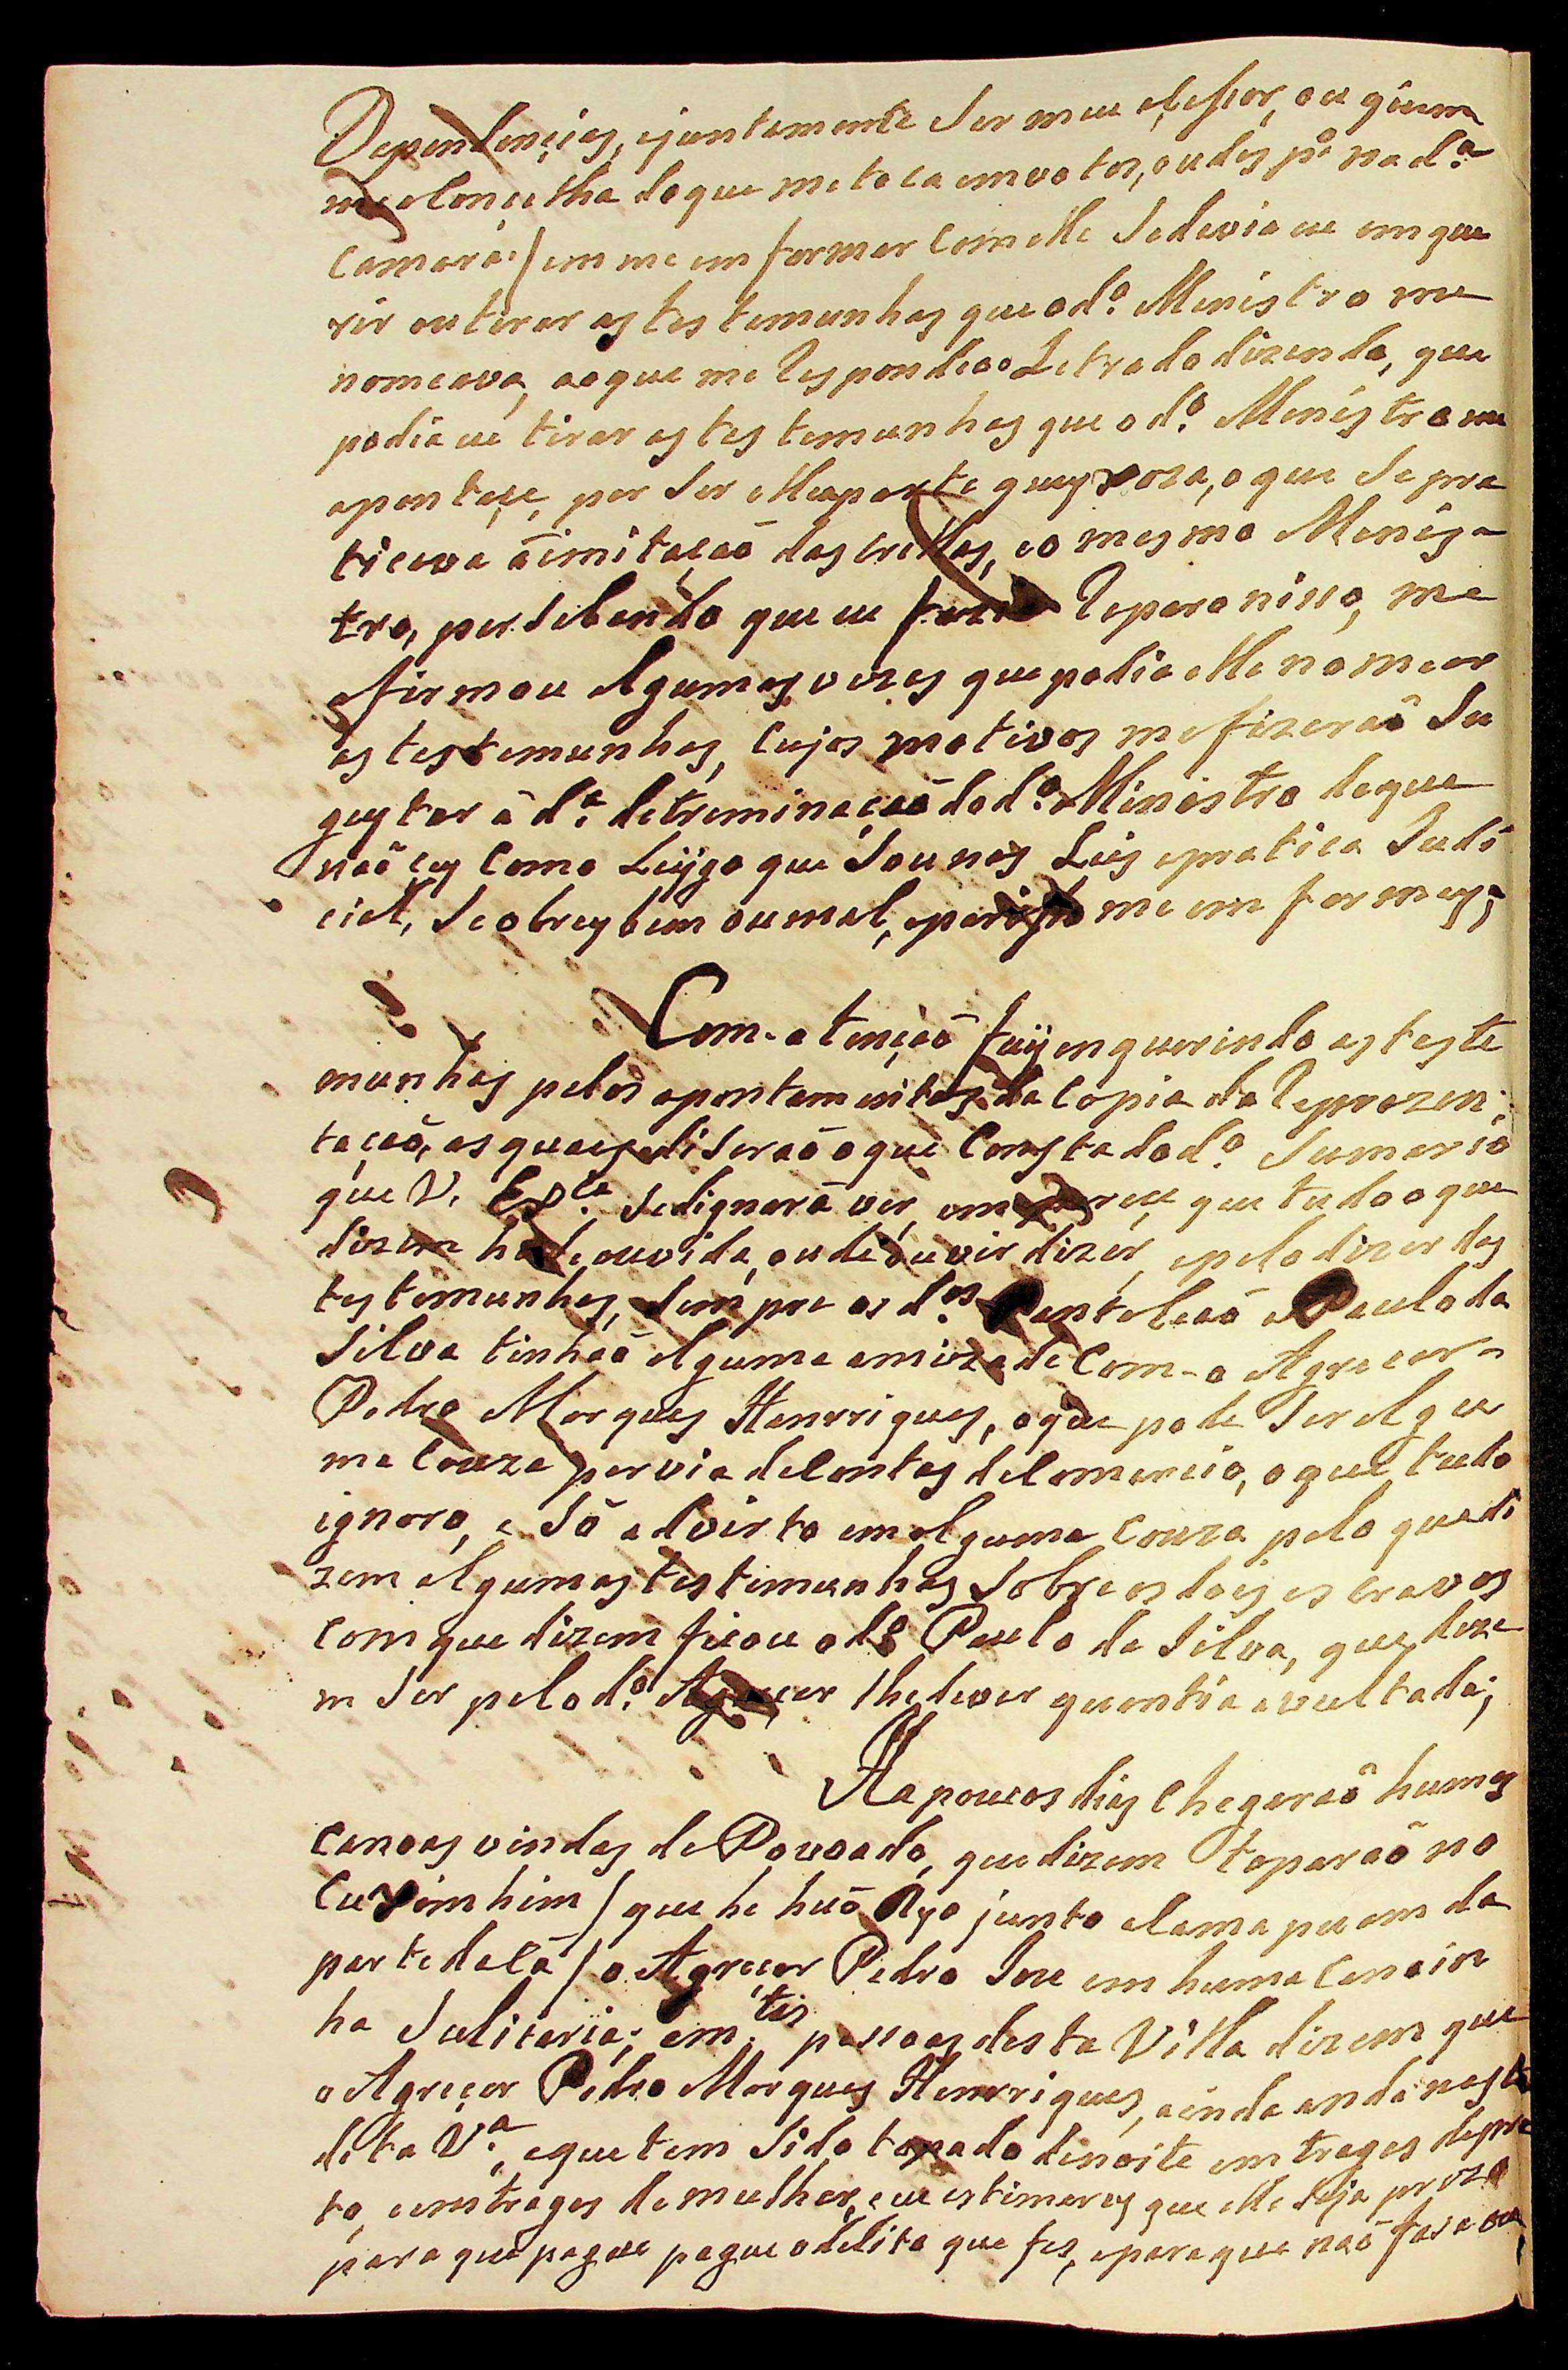 Dependençias, ejuntamente ser meu acesor, ou quem
me aConçelha do que me toca em votos, ou des pº na dª
Camara / em me em formar Com elle Sedevia eu emque
rir ou tirar as testemunhas que o dº Menistro me
nomeava, ao que me Respondeo o Letrado dizendo, que
podia eu tirar as testemunhas que o dº Menistro me
apontaçe, por Ser elle a parte queyxoza, o que Se pra
ticava á imitaçaõ das credas, e o mesmo Menis-
tro, perSebendo que eu fazia Reparo nisso, me
afirmou algumas vezes que podia elle nomear
as testemunhas, Cujos motivos me fizeraõ Su
geytar á dª detreminaçaõ do dº Ministro do que
naõ sey Como Leygo que Sou nas Leis e pratica Judi
cial, Se obrey bem ou mal, e por isso me em formey;
Com-atençaõ fuy enquerindo as teste
munhas pelos apontamentos da Copia da Reprezen-
taçaõ, as quaes diseraõ o que Consta do dº Sumario
que V. Exª Sedignará ver, em que tudo o que
dizem he de ouvida, ou de ouvir dizer, e pelo dizer das
testemunhas, Sempre os dos Pantaleaõ e Paulo da
Silva tinhaõ alguma amizade Com-o Agreçor
Pedro Marques Henrriques, o que pode Ser algu
ma Couza por via de Contas de Comercio, o que tudo
ignoro, e Só advirto em alguma Couza pelo que di
zem algumas testemunhas Sobre os dois escravos
Com que dizem ficou o dº Paulo da Silva, que dize
m Ser pelo dº Agreçor lhe dever quantia avultada;
Ha poucos dias Chegaraõ humas
Canoas vindas de Povoado, que dizem toparaõ no
Cuxiim him / que he huõ Ryo junto a Camapuam da
parte de Cá / o Agreçor Pedro Joze em huma Canoin
ha Sulitaria; e m.tas pessoas desta Villa dizem que
o Agreçor Pedro Marques Henrriques, ainda anda nesta
dita Vª, e que tem Sido topado de noite em trages de pre
to, e em trages de mulher, e eu estimarey que elle Seja prezo
para que pague pague o delito que fes, e para que naõ fasa ou